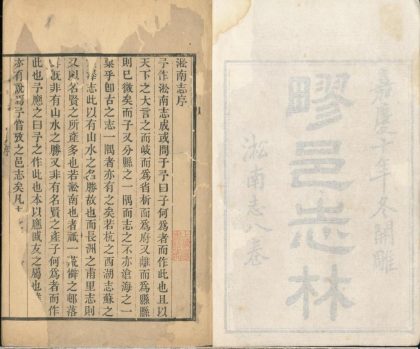 嘉慶十年冬開雕
疁邑志林
淞南志八卷
淞南志序
予作淞南志成或問于予曰子何爲者而作此也且以
天下之大言之而岐而爲省析而爲府又離而爲縣縣
則已微矣而子又分縣之一隅而志之不亦滄海之一
粟乎卽古之志一隅者亦有之矣若杭之西湖志蘇之
志此以有山水之名勝故也而長洲之甫里志則
又以名賢之所產多也若淞南也者
旣非有山水之勝又非有名賢之產子何爲者而作
此也予應之曰予之作此也本以應戚友之屬也
亦有說焉予嘗攷之邑志矣凡